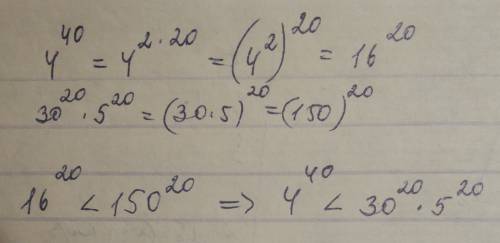 4^40 = 4^2·20 = (4^2)^20 = 16^20
30^20 · 5^20 = (30·5)^20 = (150)^20
16^20 < 150^20 => 4^40 < 30^20 · 5^20